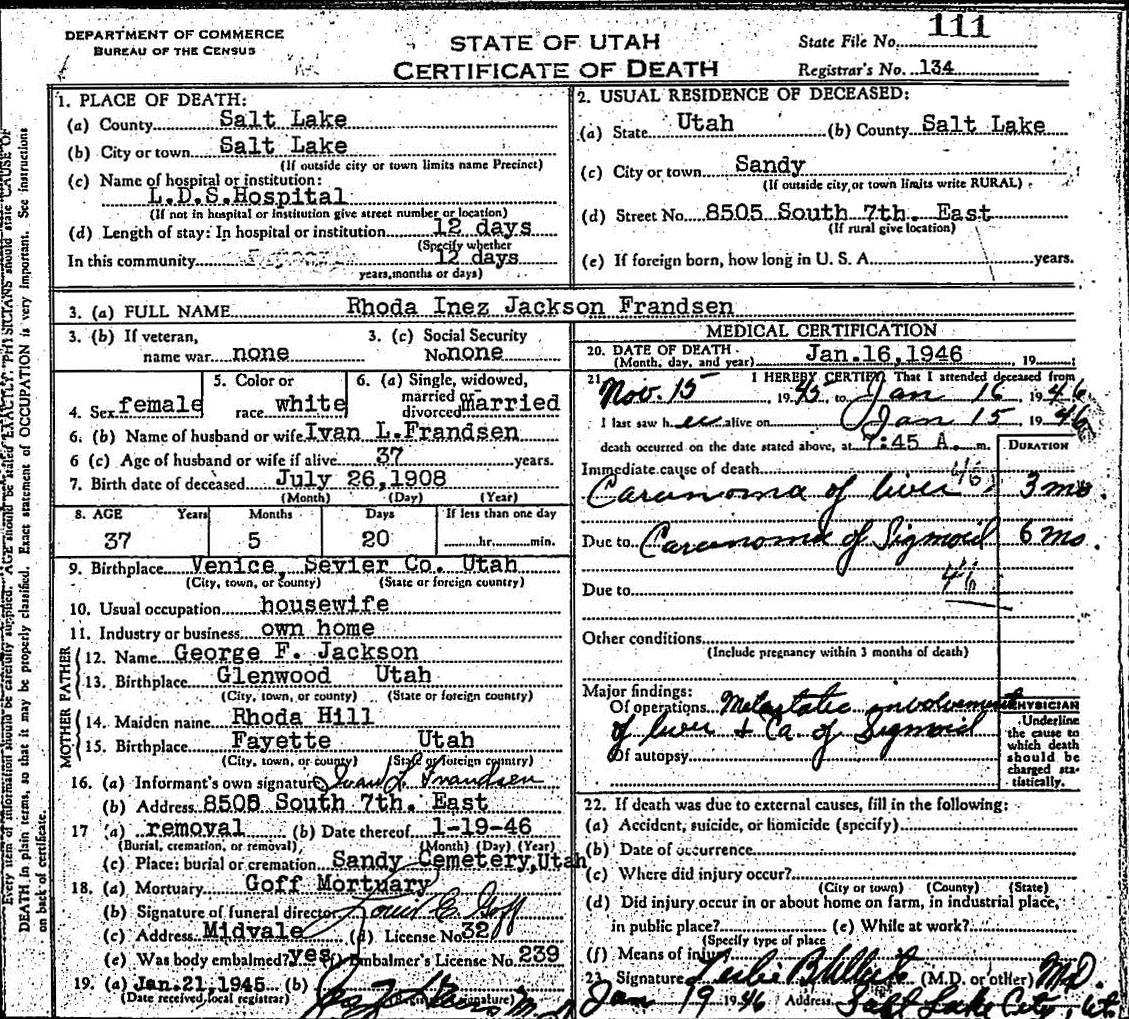 DEPARTMENT OF COMMERCE
BUREAU OF THE CENSUS
STATE OF UTAH
CERTIFICATE OF DEATH
State File No. 111
Registrar's No. 134
1. PLACE OF DEATH:
(a) County Salt Lake
(b) City or town Salt Lake
(If outside city or town limits name Precinct)
(c) Name of hospital or institution:
L.D.S.Hospital
(If not in hospital or institution give street number or location)
(d) Length of stay: In hospital or institution 12 days
(Specify whether
In this community 12 days
years, months or days)
2. USUAL RESIDENCE OF DECEASED:
(a) State Utah (b) County Salt Lake
(c) City or town Sandy
(If outside city or town limits write RURAL)
(d) Street No. 8505 South 7th. East
(If rural give location)
(e) If foreign born, how long in U. S. A. years.
3. (a) FULL NAME Rhoda Inez Jackson Frandsen
3. (b) If veteran, name war none
3. (c) Social Security No none
4. Sex female
5. Color or race white
6. (a) Single, widowed, married or divorced Married
6. (b) Name of husband or wife Ivan L.Frandsen
6 (c) Age of husband or wife if alive 37 years.
7. Birth date of deceased July 26,1908
(Month) (Day) (Year)
8. AGE Years Months Days If less than one day
37 5 20 hr. min.
9. Birthplace Venice, Sevier Co. Utah
(City, town, or county) (State or foreign country)
10. Usual occupation housewife
11. Industry or business own home
FATHER
12. Name George F. Jackson
13. Birthplace Glenwood Utah
(City, town, or county) (State or foreign country)
MOTHER
14. Maiden name Rhoda Hill
15. Birthplace Fayette Utah
(City, town, or county) (State or foreign country)
16. (a) Informant's own signature Ivan L. Frandsen
(b) Address 8505 South 7th. East
17 (a) removal (b) Date thereof 1-19-46
(Burial, cremation, or removal) (Month) (Day) (Year)
(c) Place: burial or cremation Sandy Cemetery,Utah
18. (a) Mortuary Goff Mortuary
(b) Signature of funeral director Louis E. Goff
(c) Address Midvale (d) License No. 32
(e) Was body embalmed? yes (f) Embalmer's License No. 239
19. (a) Jan.21,1945 (b)
(Date received local registrar) (Registrar's signature)
MEDICAL CERTIFICATION
20. DATE OF DEATH Jan.16,1946 19
(Month, day, and year)
21. I HEREBY CERTIFY That I attended deceased from
Nov. 15 1945 to Jan 16 1946
I last saw her alive on Jan 15 1946
death occurred on the date stated above, at 7:45 A. m.
DURATION
Immediate cause of death
Carcinoma of liver 46 3 mo
Due to Carcinoma of Sigmoid 6 mo.
Due to 46
Other conditions
(Include pregnancy within 3 months of death)
Major findings:
Of operations Metastatic involvement
of liver + Ca. of Sigmoid
Of autopsy
PHYSICIAN
Underline
the cause to
which death
should be
charged sta-
tistically.
22. If death was due to external causes, fill in the following:
(a) Accident, suicide, or homicide (specify)
(b) Date of occurrence
(c) Where did injury occur?
(City or town) (County) (State)
(d) Did injury occur in or about home on farm, in industrial place,
in public place? (e) While at work?
(Specify type of place
(f) Means of injury
23 Signature Leslie B (M.D. or other) M.D.
Jan 19 1946 Address Salt Lake City, Ut.
Every item of information should be carefully supplied. AGE should be stated EXACTLY. PHYSICIANS should state CAUSE OF
DEATH, in plain terms, so that it may be properly classified. Exact statement of OCCUPATION is very important. See instructions
on back of certificate.